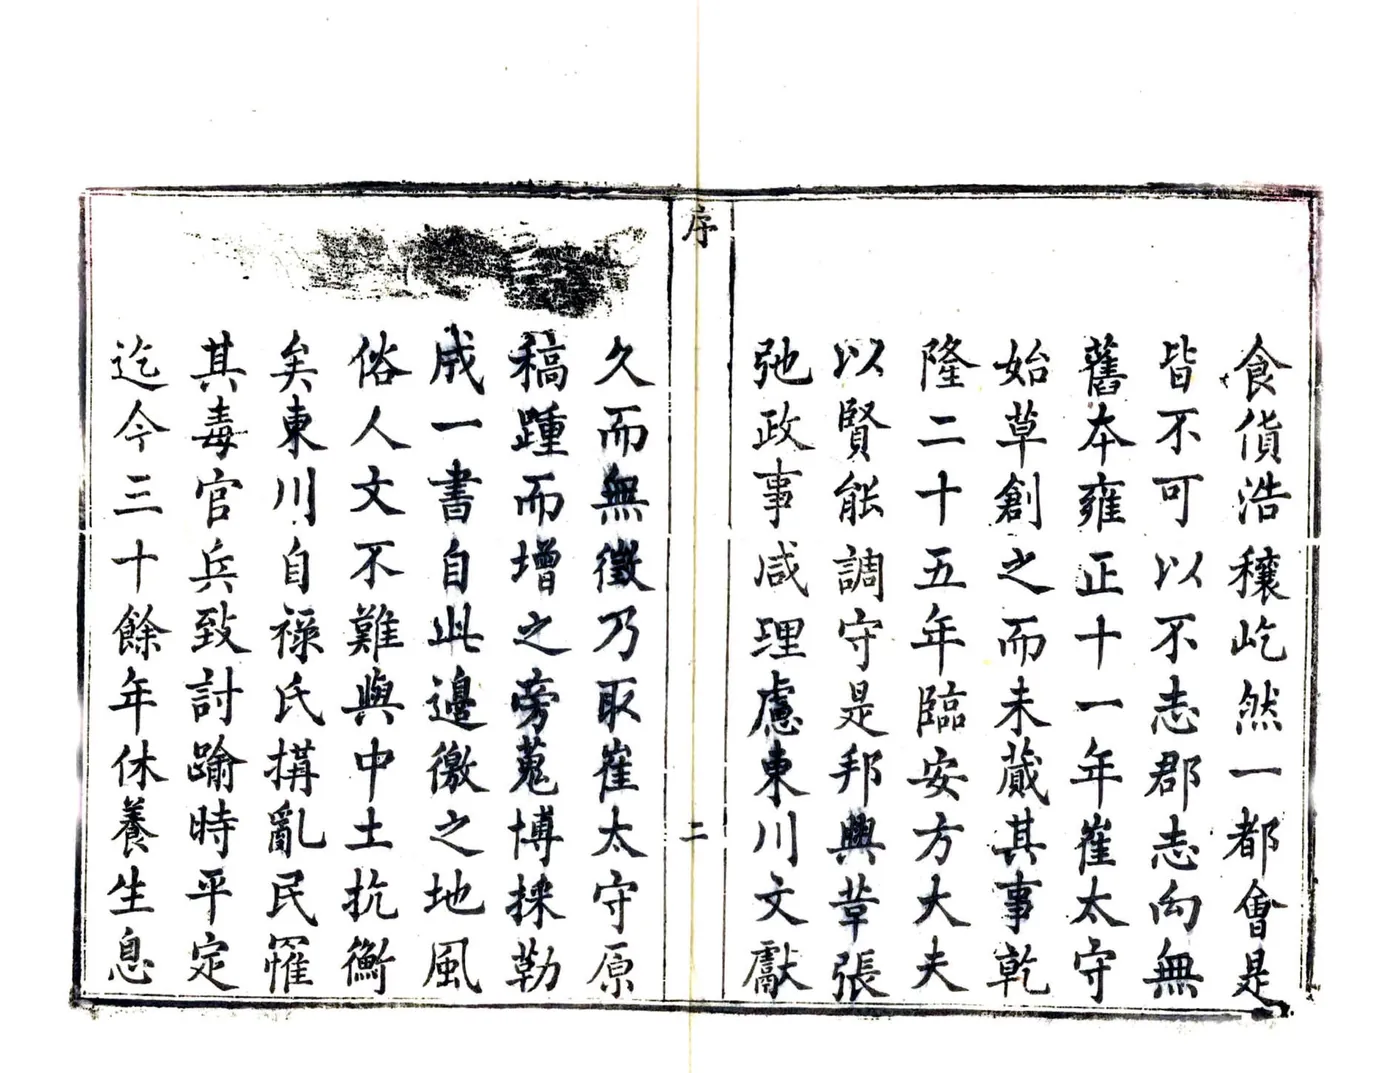 食貨浩穰屹然一都會是
皆不可以不志郡志向無
舊本雍正十一年崔太守
始草創之而未蕆其事乾
隆二十五年臨安方大夫
以賢能調守是邦興葺張
弛政事咸理慮東川文獻
序
二
久而無徵乃取崔太守原
稿踵而增之旁蒐博採勒
成一書自此邊徼之地風
俗人文不難與中土抗衡
矣東川自祿氏搆亂民罹
其毒官兵致討踰時平定
迄今三十餘年休養生息